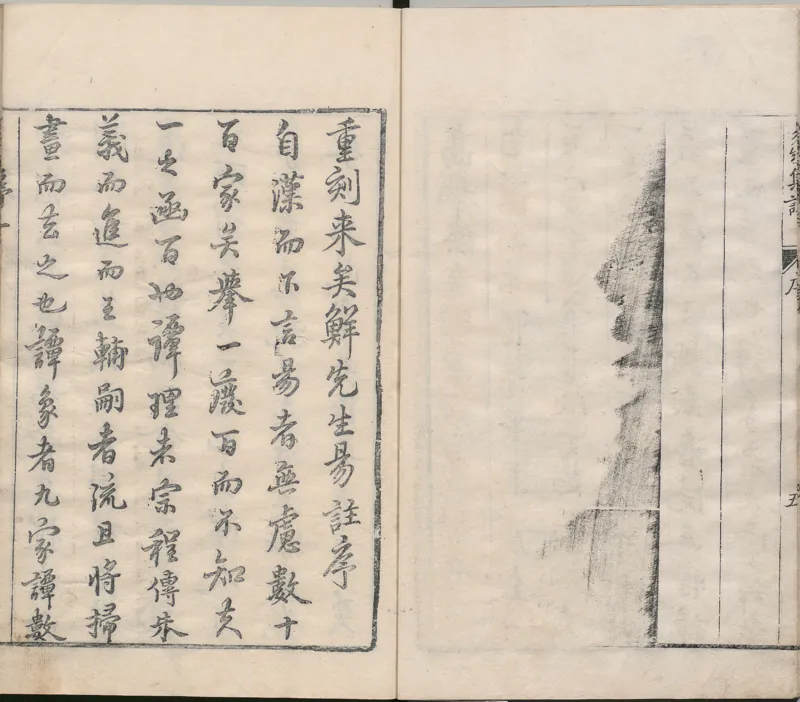 五
重刻来矣鮮先生易註序
自漢而下言易者無慮數十
百家矣舉一廢百而不知夫
一之函百也譚理者宗程傳朱
義而進而王輔嗣者流且將掃
畫而去之也譚象者九家譚數